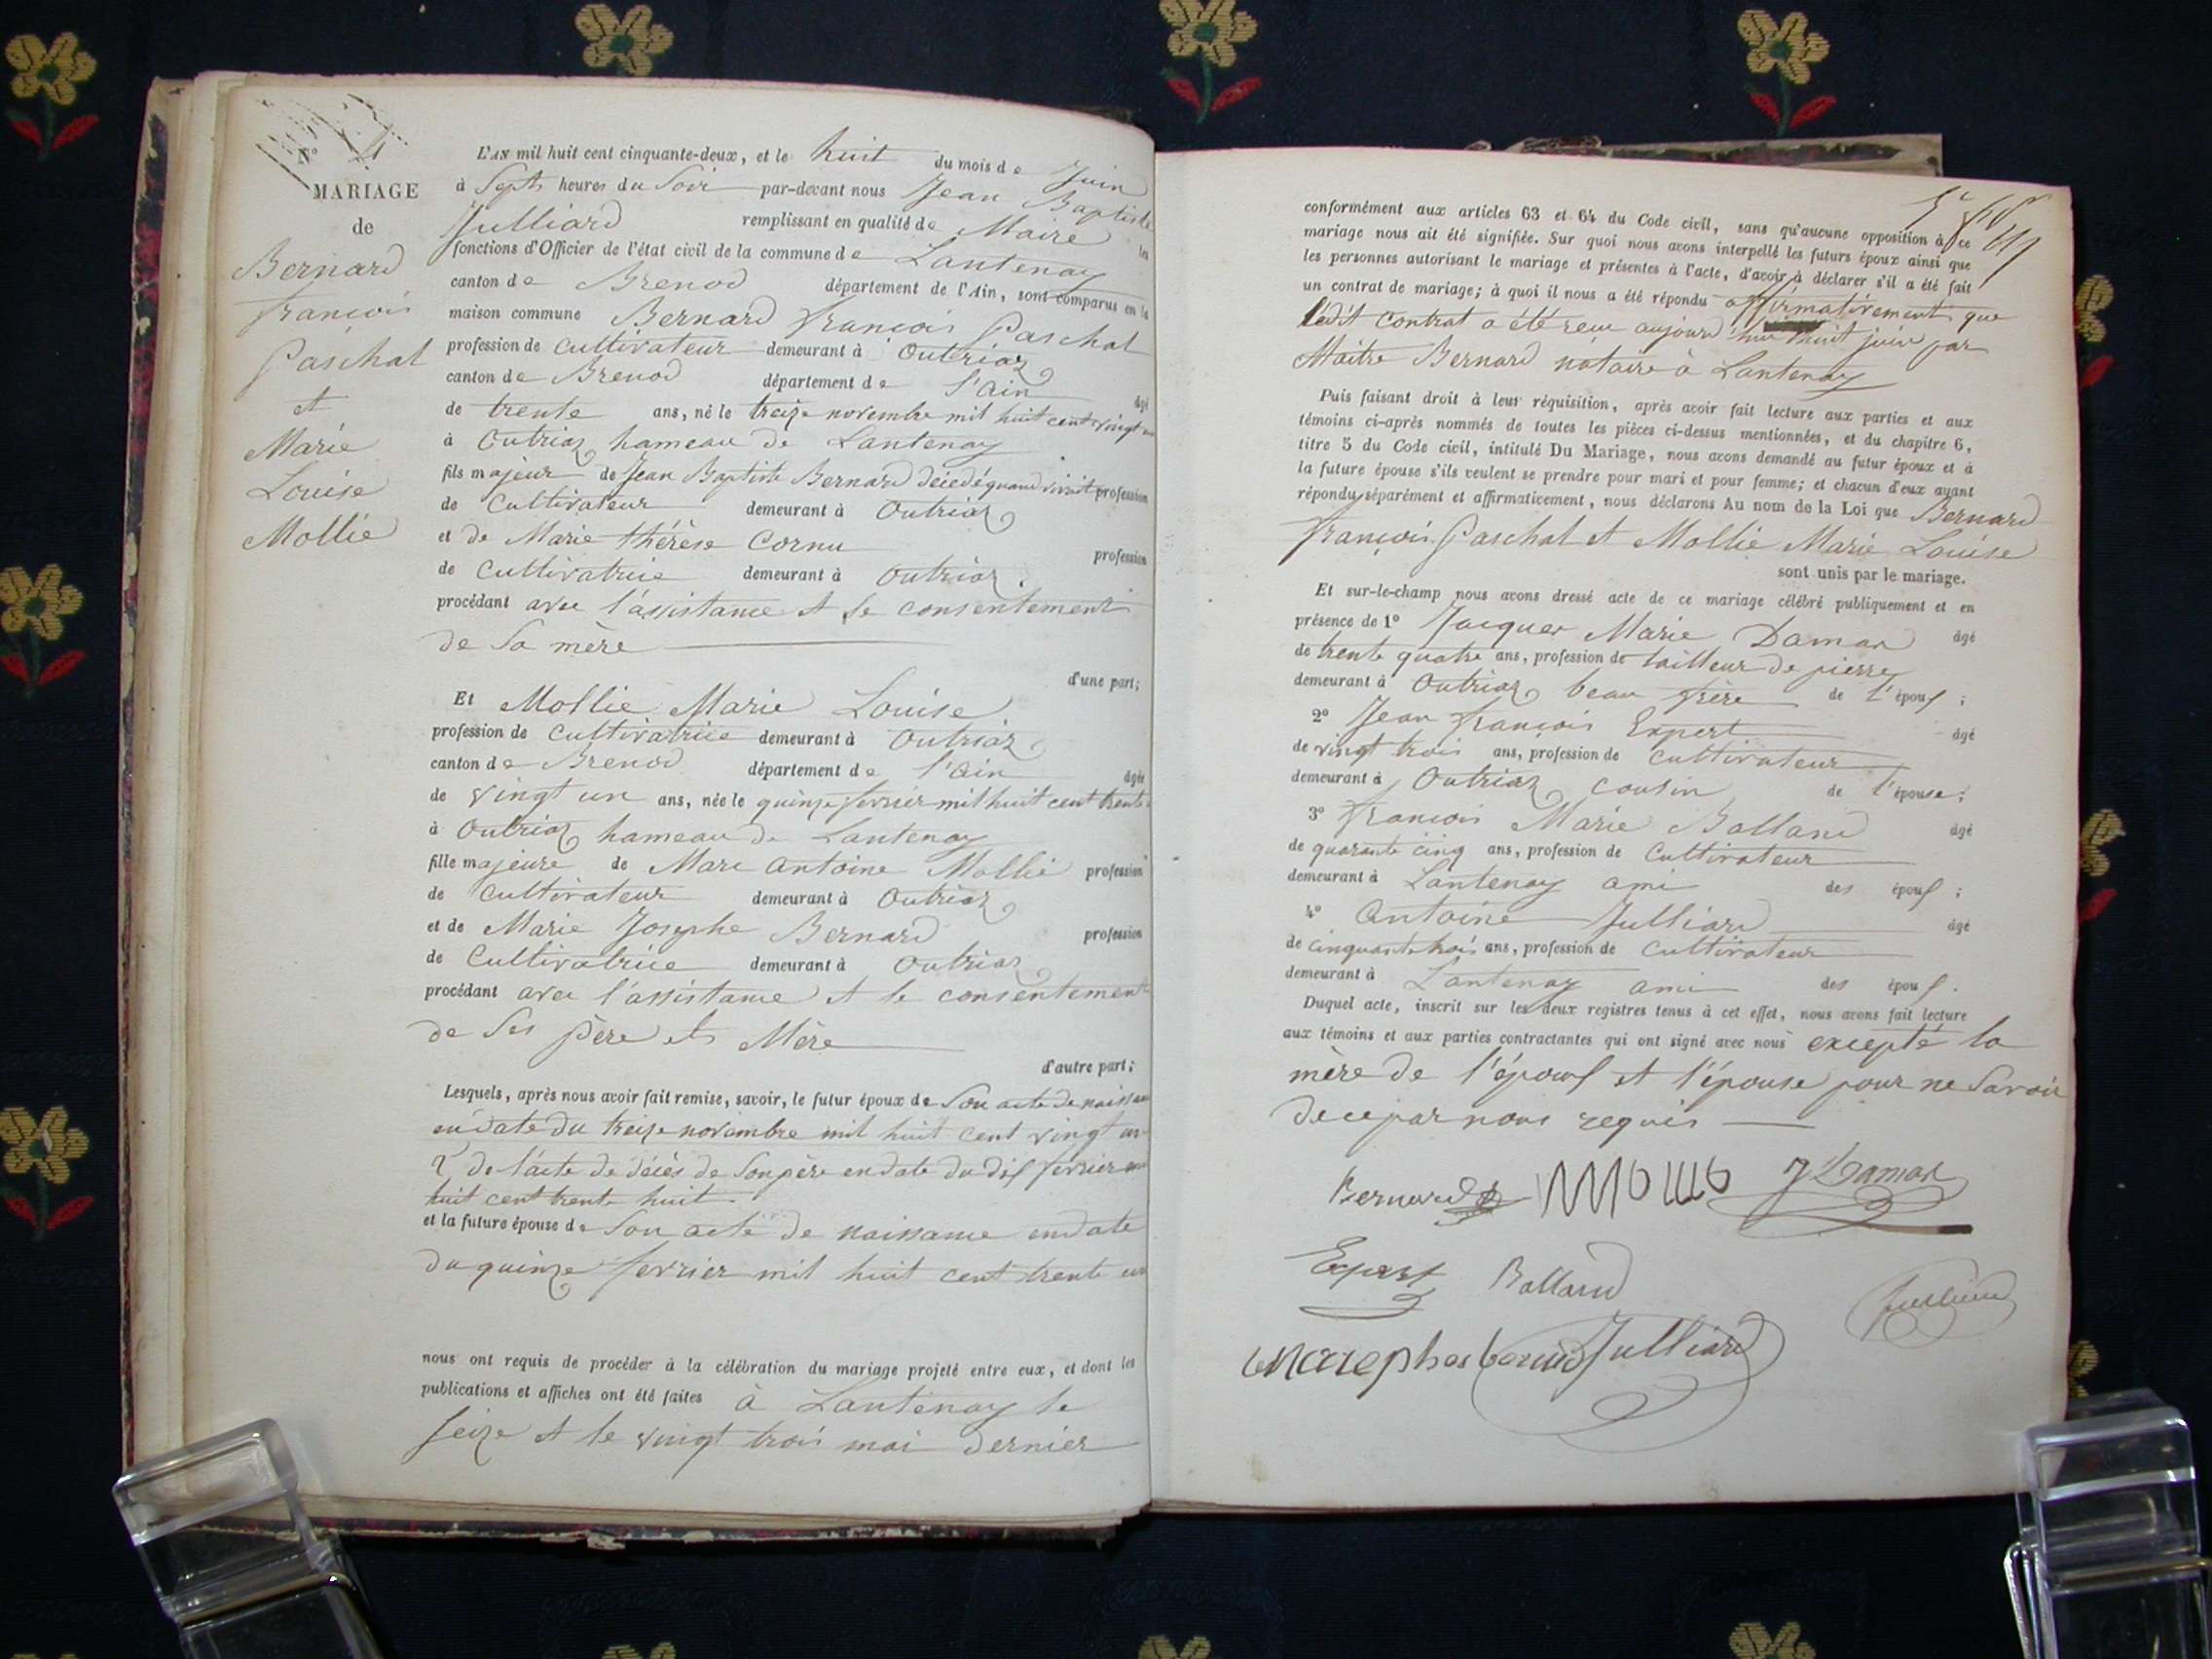 N° 4
MARIAGE
de
Bernard
françois
Paschal
et
Marie
Louise
Mollié
L'AN mil huit cent cinquante-deux, et le huit du mois de Juin
à Sept heures du Soir par-devant nous Jean Baptiste
Julliard remplissant en qualité de Maire les
fonctions d'Officier de l'état civil de la commune de Lantenay
canton de Brenod département de l'Ain, sont comparus en la
maison commune Bernard françois Paschal
profession de Cultivateur demeurant à Outriaz
canton de Brenod département de l'Ain âgé
de trente ans, né le treize novembre mil huit cent vingt un
à Outriaz hameau de Lantenay
fils majeur de Jean Baptiste Bernard décédé quand vivait profession
de Cultivateur demeurant à Outriaz
et de Marie thérèse Cornu profession
de Cultivatrice demeurant à Outriaz
procédant avec l'assistance et le consentement
de Sa mère
d'une part;
Et Mollie Marie Louise
profession de Cultivatrice demeurant à Outriaz
canton de Brenod département de l'Ain âgée
de vingt un ans, née le quinze fevrier mil huit cent trente
à Outriaz hameau de Lantenay
fille majeure de Marc antoine Mollié profession
de Cultivateur demeurant à Outriaz
et de Marie Josephe Bernard profession
de Cultivatrice demeurant à Outriaz
procédant avec l'assistance et le consentement
de Ses père et Mère
d'autre part;
Lesquels, après nous avoir fait remise, savoir, le futur époux de Son acte de naissance
en date du treize novembre mil huit cent vingt un
2° de l'acte de décès de Son père en date du dix fevrier mil
huit cent trente huit.
et la future épouse de Son acte de naissance en date
du quinze fevrier mil huit cent trente un
nous ont requis de procéder à la célébration du mariage projeté entre eux, et dont les
publications et affiches ont été faites à Lantenay le
Seize et le vingt trois mai dernier
conformément aux articles 63 et 64 du Code civil, sans qu'aucune opposition à ce
mariage nous ait été signifiée. Sur quoi nous avons interpellé les futurs époux ainsi que
les personnes autorisant le mariage et présentes à l'acte, d'avoir à déclarer s'il a été fait
un contrat de mariage; à quoi il nous a été répondu affirmativement que
ledit contrat a été reçu aujourd'hui huit juin par
Maitre Bernard notaire à Lantenay
Puis faisant droit à leur réquisition, après avoir fait lecture aux parties et aux
témoins ci-après nommés de toutes les pièces ci-dessus mentionnées, et du chapitre 6,
titre 5 du Code civil, intitulé Du Mariage, nous avons demandé au futur époux et à
la future épouse s'ils veulent se prendre pour mari et pour femme; et chacun d'eux ayant
répondu séparément et affirmativement, nous déclarons Au nom de la Loi que Bernard
françois Paschal et Mollié Marie Louise
sont unis par le mariage.
Et sur-le-champ nous avons dressé acte de ce mariage célébré publiquement et en
présence de 1° Jacques Marie Damas âgé
de trente quatre ans, profession de tailleur de pierre
demeurant à Outriaz beau frère de l'époux;
2° Jean françois Expert âgé
de vingt trois ans, profession de Cultivateur
demeurant à Outriaz cousin de l'épouse;
3° françois Marie Balland âgé
de quarante cinq ans, profession de Cultivateur
demeurant à Lantenay ami des époux;
4° Antoine Julliard âgé
de cinquante trois ans, profession de Cultivateur
demeurant à Lantenay ami des époux.
Duquel acte, inscrit sur les deux registres tenus à cet effet, nous avons fait lecture
aux témoins et aux parties contractantes qui ont signé avec nous excepté la
mère de l'époux et l'épouse pour ne Savoir
de ce par nous requis
Bernard J Damas
Expert Balland Julliard
Julliard